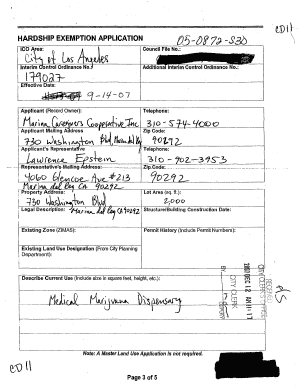 CD11
HARDSHIP EXEMPTION APPLICATION
05-0872-S30
ICO Area:
City of Los Angeles
Council File No.:
Interim Control Ordinance No.:
179027
Additional Interim Control Ordinance No.:
Effective Date:
9-14-07
Applicant (Record Owner):
Marina Caregivers Cooperative Inc
Telephone:
310-574-4000
Applicant Mailing Address
730 Washington Blvd, Marina del Rey
Zip Code:
90292
Applicant's Representative
Lawrence Epstein
Telephone:
310-902-3953
Representative's Mailing Address
4060 Glencoe Ave #213
Marina del Rey CA 90292
Zip Code:
90292
Property Address:
730 Washington Blvd
Lot Area (sq. ft.):
2,000
Legal Description:
Marina del Rey CA 90292
Structure/Building Construction Date:
Existing Zone (ZIMAS):
Permit History (Include Permit Numbers):
Existing Land Use Designation (From City Planning Department):
Describe Current Use (Include size in square feet, height, etc.):
Medical Marijuana Dispensary
RECEIVED
CITY CLERK'S OFFICE
2007 DEC 12 AM 11:17
CITY CLERK
BY
DEPUTY
CD11
Note: A Master Land Use Application is not required.
Page 3 of 5